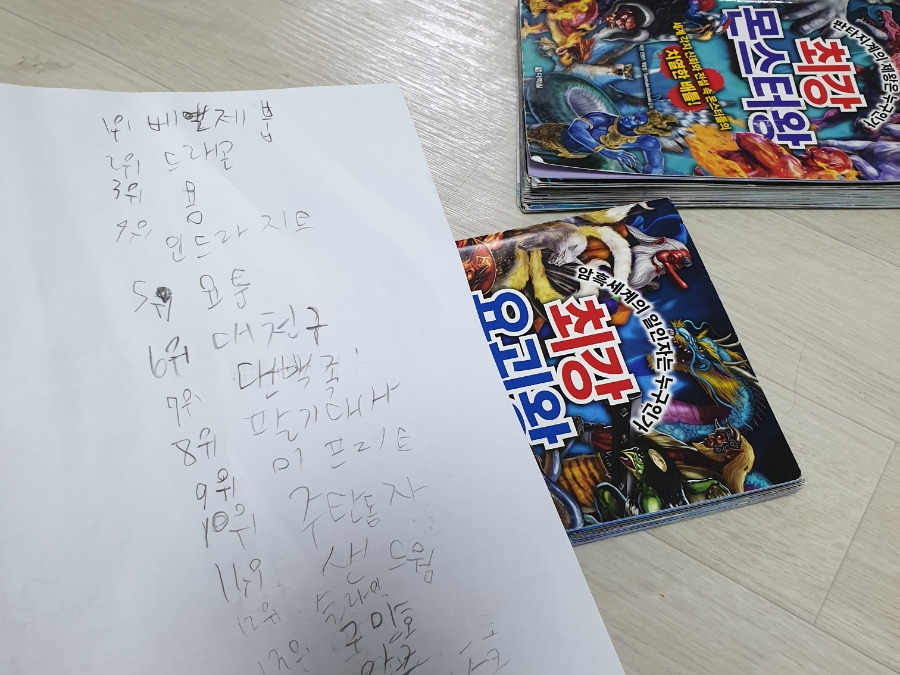 1위 베르제 붑
2위 드래곤
3위 용
4위 인드라지트
5위
6위 대천구
7위
8위 팔기대사
9위 이프리트
10위 주탄동자
11위 샌드웜
12위 슬라임
구미호
판타지계의 제왕은 누구인가!
최강
몬스터왕
세계 각지 신화와 전설 속 몬스터들의
치열한 배틀!
암흑세계의 일인자는 누구인가!
최강
요괴왕